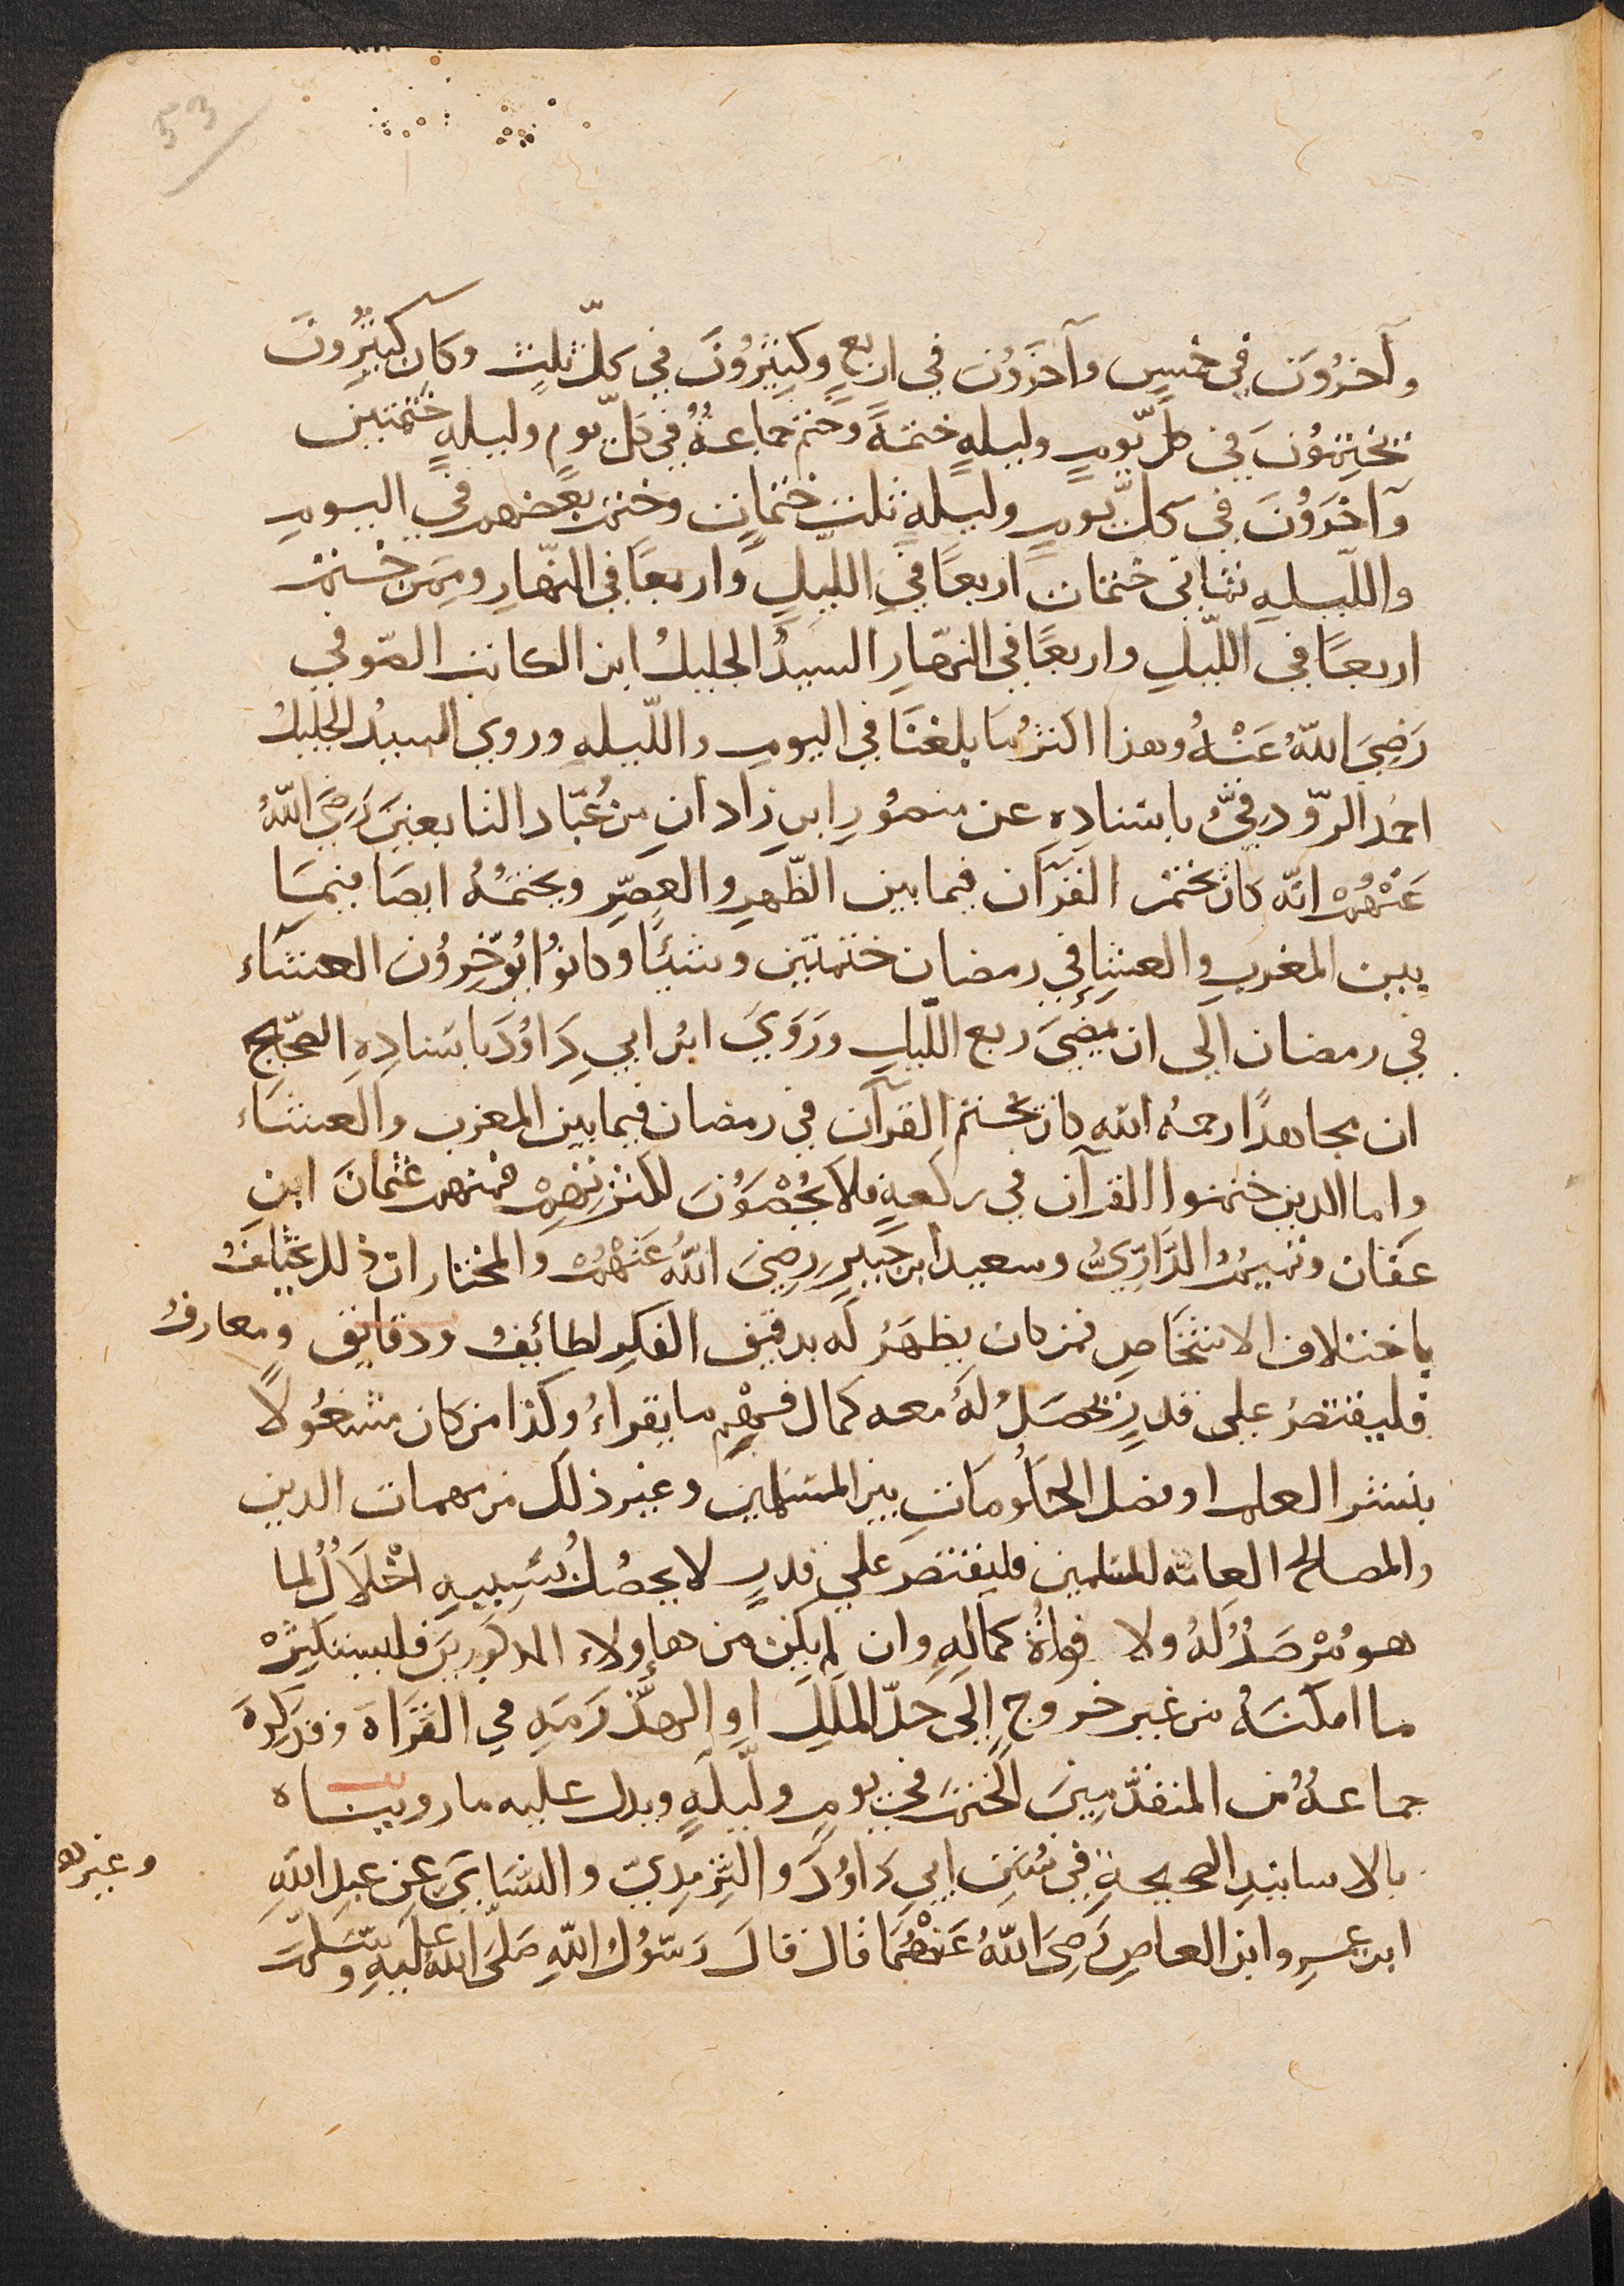 53
وآخرُوَن في خمسٍ وآخَرَوُن في اربعٍ وكَثِيرُوُنَ في كلّ ثلثٍ وكان كثيرُونَ
يختِموُنَ في كل يّومٍ وليلهٍ ختمةً وختم جماعةُ في كلّ يومٍ وليلهٍ ختمتين
وآخَروُنَ في كلّ يّومٍ وليلهٍ ثلث ختماتٍ وختم بعضهم في اليومِ
واللّيلهِ ثماني ختمات اربعًا في اللّيلِ واربعًا في النّهارِ وممن ختم
اربعًا في اللّيلِ واربعًا في النّهارِ السيدُ الجليلُ ابن الكاتب الصّوفي
رَضِيَ اللهُ عَنْهُ وهذا اكثرُ ما بلغنَا في اليومِ واللّيلهِ وروي السيدُ الجليلُ
احمد الدّورقيُّ باسنادِهِ عن منصوُرِ ابنِ زادانِ من عُبّاد التابعينَ رَضِيَ اللهُ
عَنْهُمْ انّه كان يختم القرآن فيما بين الظّهرِ والعصرِ ويختمُهُ ايضا فيما
بين المغربِ والعشِاءِ في رمضان ختمتين وشئًا وكانوُا يُوخّروُنَ العشآء
في رمضان الي ان يمضِيَ ربع اللّيلِ ورَوَيَ ابن ابي دَاوُدَ باسنادِهِ الصّحيح
ان مجاهدًا رحمهُ الله كان يختم القرآن في رمضان فيما بين المغرب والعشاء
واما الدين ختموا القرآن في ركعهٍ فلا يُحْصَوُنَ لكثرتهِم فمنهم عُثمانَ ابنِ
عفّان وتميمُ الدَّارِيُّ وسعيد ابن جُبيرٍ رضِيَ اللهُ عَنْهُمْ والمختار ان ذلك يختلفُ
باختلاف الاشخاصِ فمن كان يظهَرُ لَه بدقيقِ الفكرِ لطائِفُ ودقايق ومعارفُ
فليقتصرُ علي قدرٍ يحصَلُ لَهُ معه كمال فهم ما يقراءُ وكذا من كان مشغوُلًا
بنشر العلم او فصل الحكُومَاتِ بين المسلمين وغير ذلك من مهمات الدين
والمصالح العامّه للمسلمين فليقتصر علي قدرٍ لا يحصُلُ بسَببهِ اخْلَالُ لما
هو مُرْصَدُ لَهُ ولا فواةُ كمالِهِ وان لم يكن من هاولاء المدكورينَ فليستكثِرْ
ما امكنَهُ من غير خروجٍ إلَى حدّ المللِ او الهذرَمهِ في القَراة وقد كرهَ
جماعهٌ من المتقدّمينَ الختمَ في يومٍ وليلهٍ ويدل عليه ما رويناه
بالاسانيدِ الصحيحةِ في سُنَنِ ابي دَاوُدَ والتِّرمِديّ والنّسَايَ عن عبدِ اللهِ
وغيره
ابن عمرِ وابن العاصِ رَضِيَ اللهُ عَنْهُمَا قال قالَ رَسوُلُ اللهِ صَلَّى اللهُ عَلَيهِ وسَلّمَ